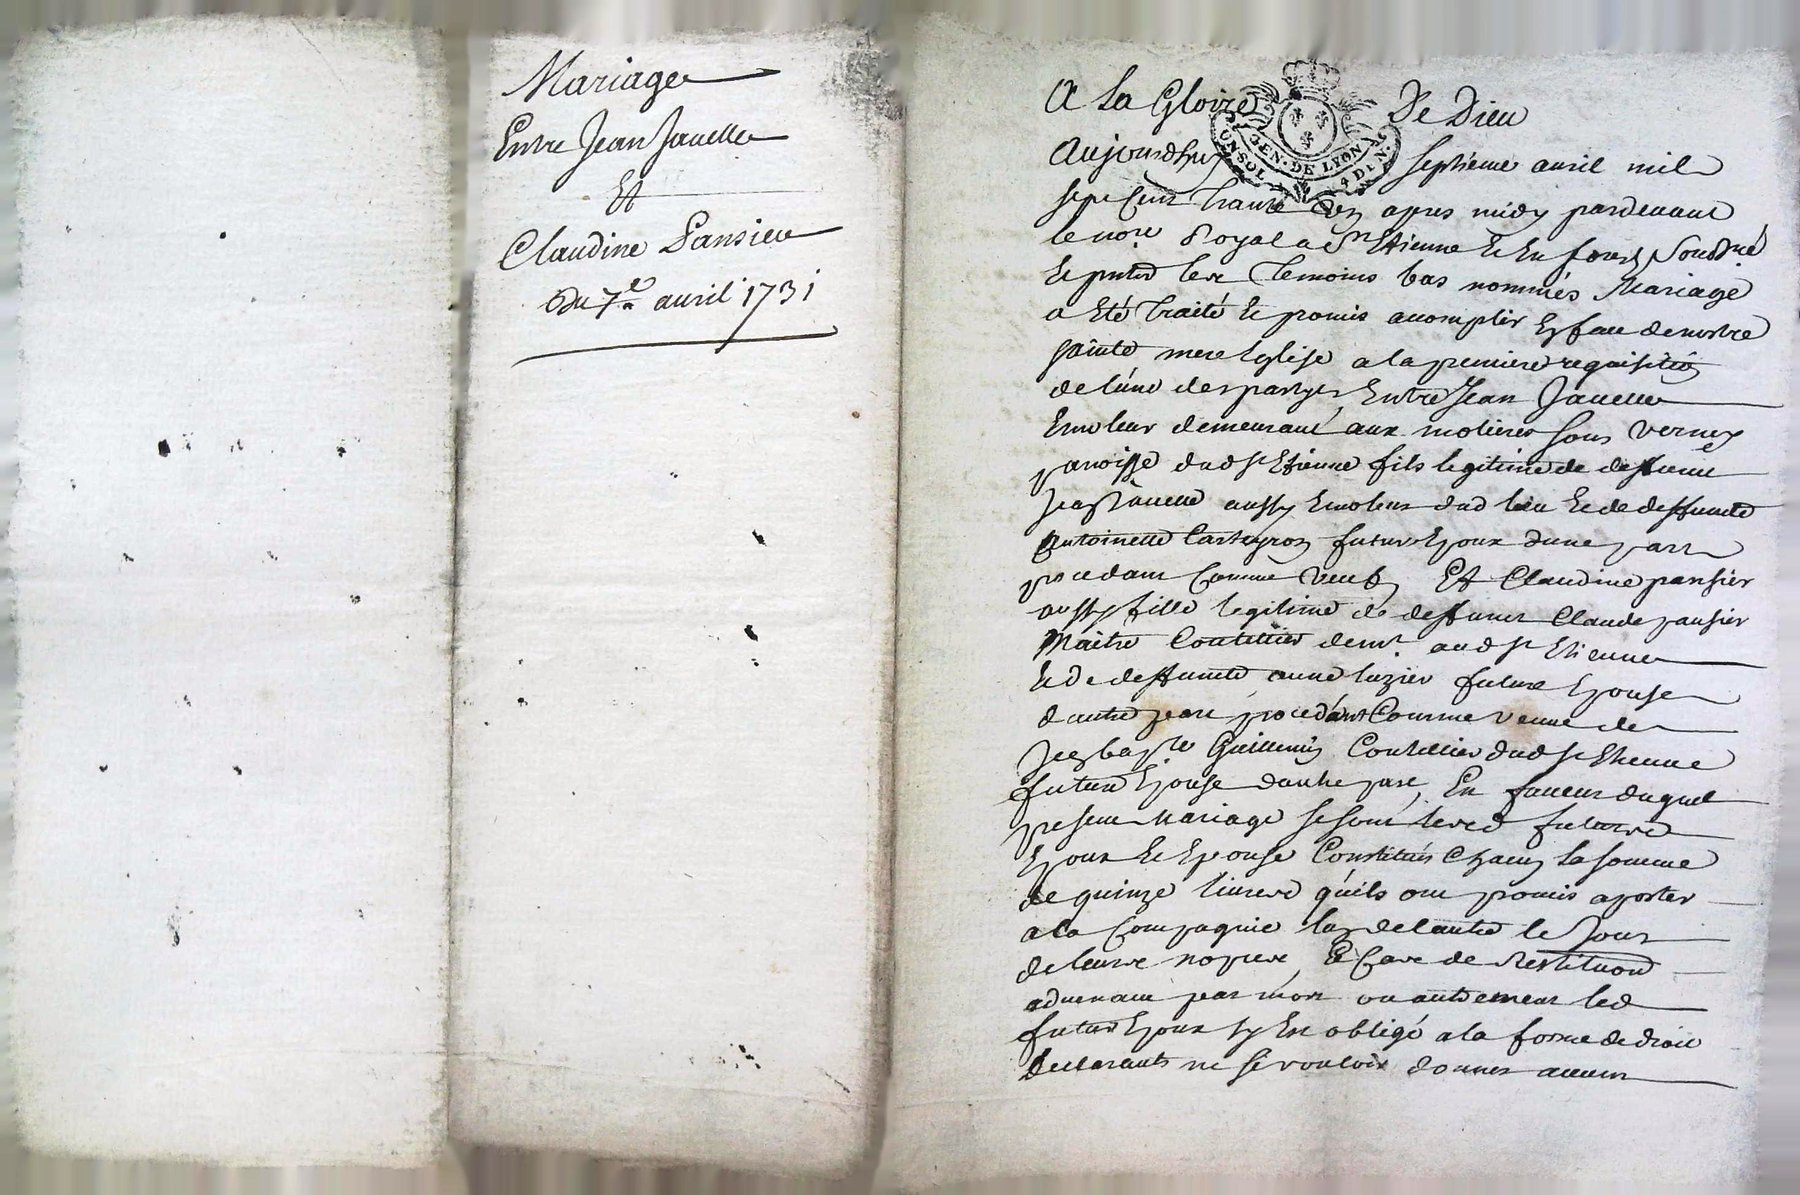 Mariage
Entre Jean Janelle
Et
Claudine Pansier
du 7e avril 1731
A La Gloire De Dieu
GEN. DE LYON
4 DEN.
Aujourdhuy septieme avril mil
sept Cent Trante Un apres midy pardevant
le nore Royal a St Etienne Et En forest soussigné
Et pntes les Temoins bas nommés Mariage
a Eté Traité Et promis acomplir En face de nostre
sainte mere Eglise a la premiere requisition
de lune des partyes Entre Jean Janelle
Emoleur demeurant aux molieres sous verney
paroisse dud st Etienne fils legitime de deffunt
Jean Janelle aussy Emoleur dud lieu Et de deffuncte
Antoinette Carteyron futur Epoux dune part
procedant Comme veuf Et Claudine pansier
aussy fille legitime de deffunct Claude pansier
Maitre Coutellier demt. aud st Etienne
Et de deffuncte anne luzier future Epouse
dautre part procedant Comme veuve de
Jean bapte Guillemin Coutellier dud st Etienne
future Epouse dautre part, En faveur duquel
present Mariage se sont lesd futurs
Epoux Et Epouse Constitués Chacun la somme
de quinze livres quils ont promis aporter
a la Compagnie lun de lautre le Jour
de leurs nopces, Et Cas de Restitution
advenant par mort ou autrement led
futur Epoux sy Est obligé a la forme de droit
declarants ne se vouloir donner aucun